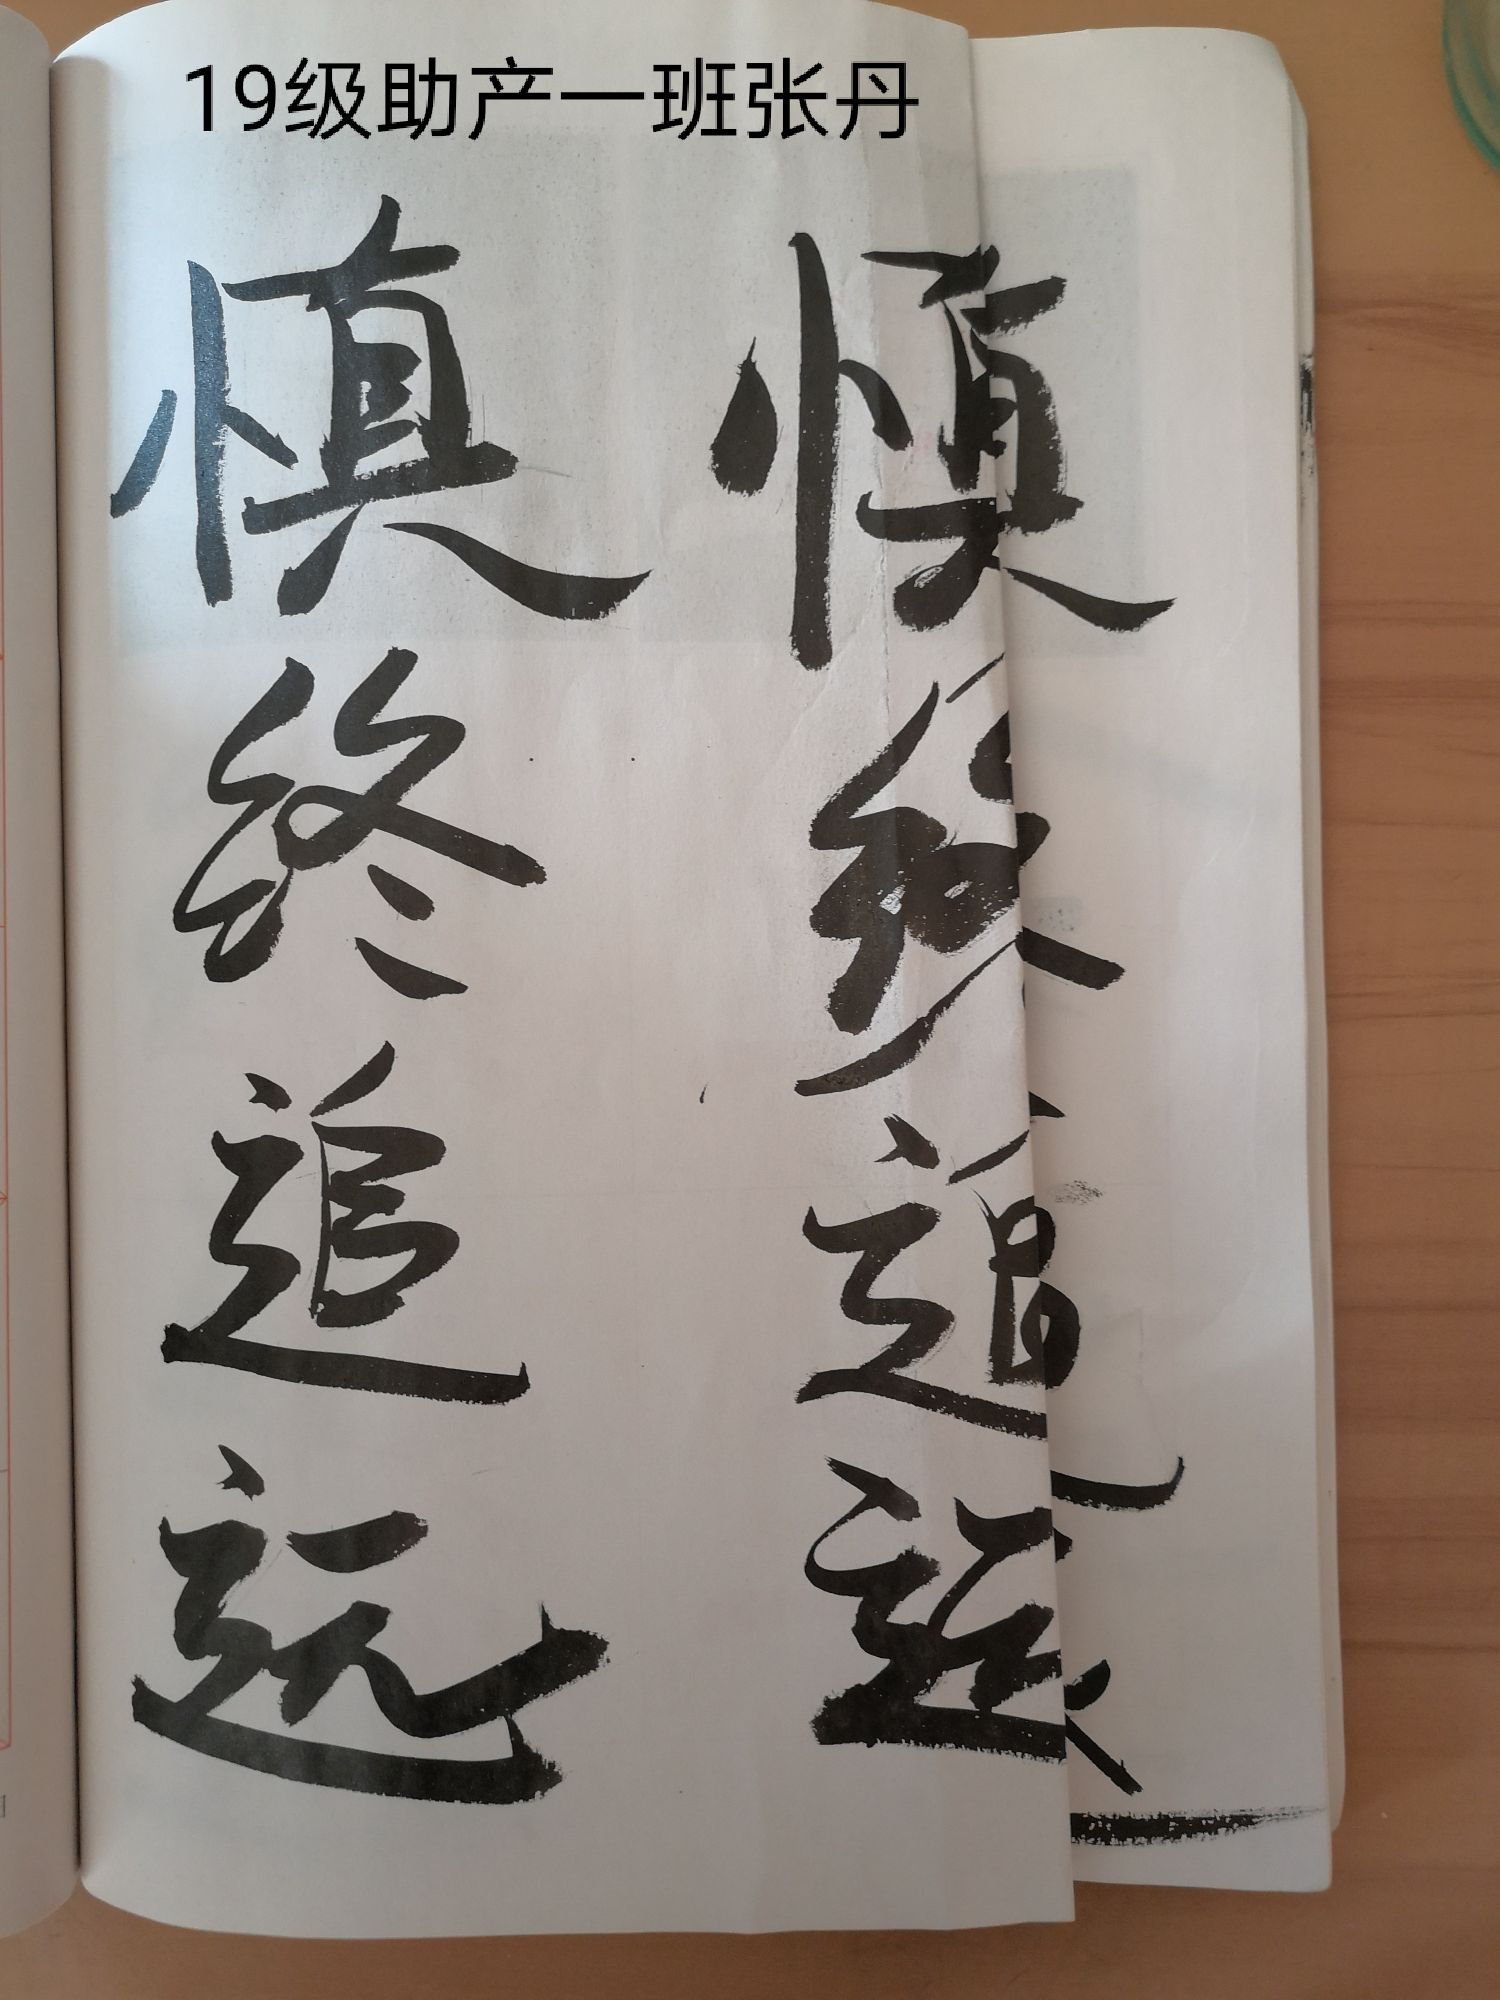 19级助产一班张丹
慎终追远
慎终追远